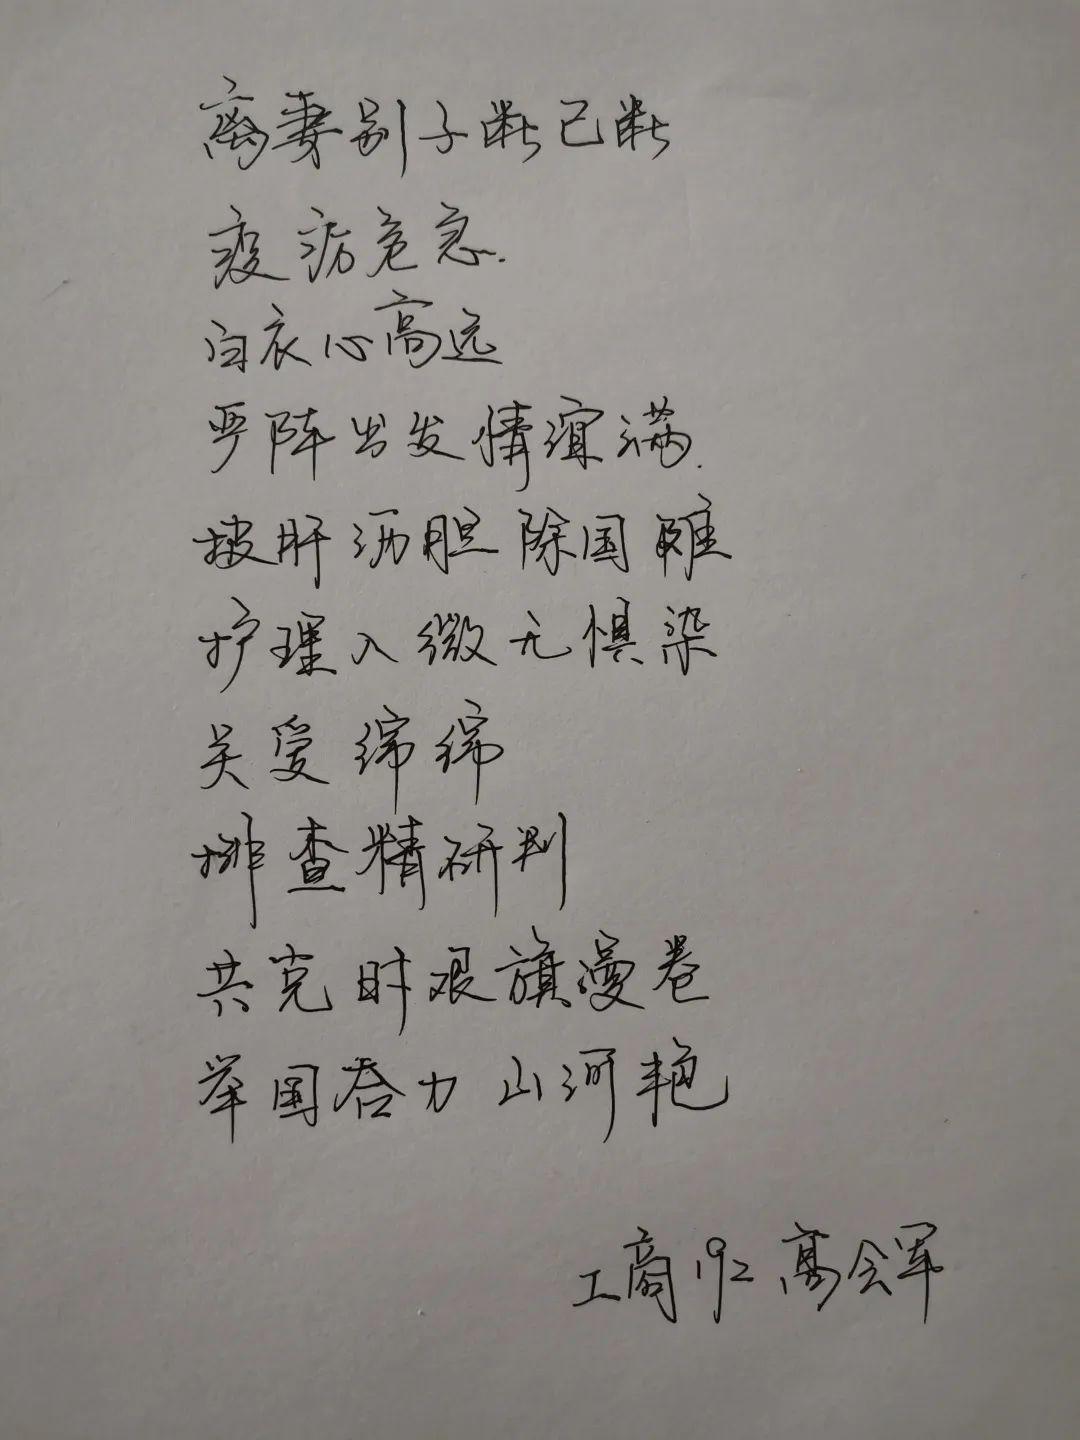 离妻别子断已断
疫疠危急.
白衣心高远
严阵出发情谊满.
披肝沥胆除国难
护理入微无惧染
关爱绵绵
排查精研判
共克时艰旗漫卷
举国吞力山河艳
工商192 高会军